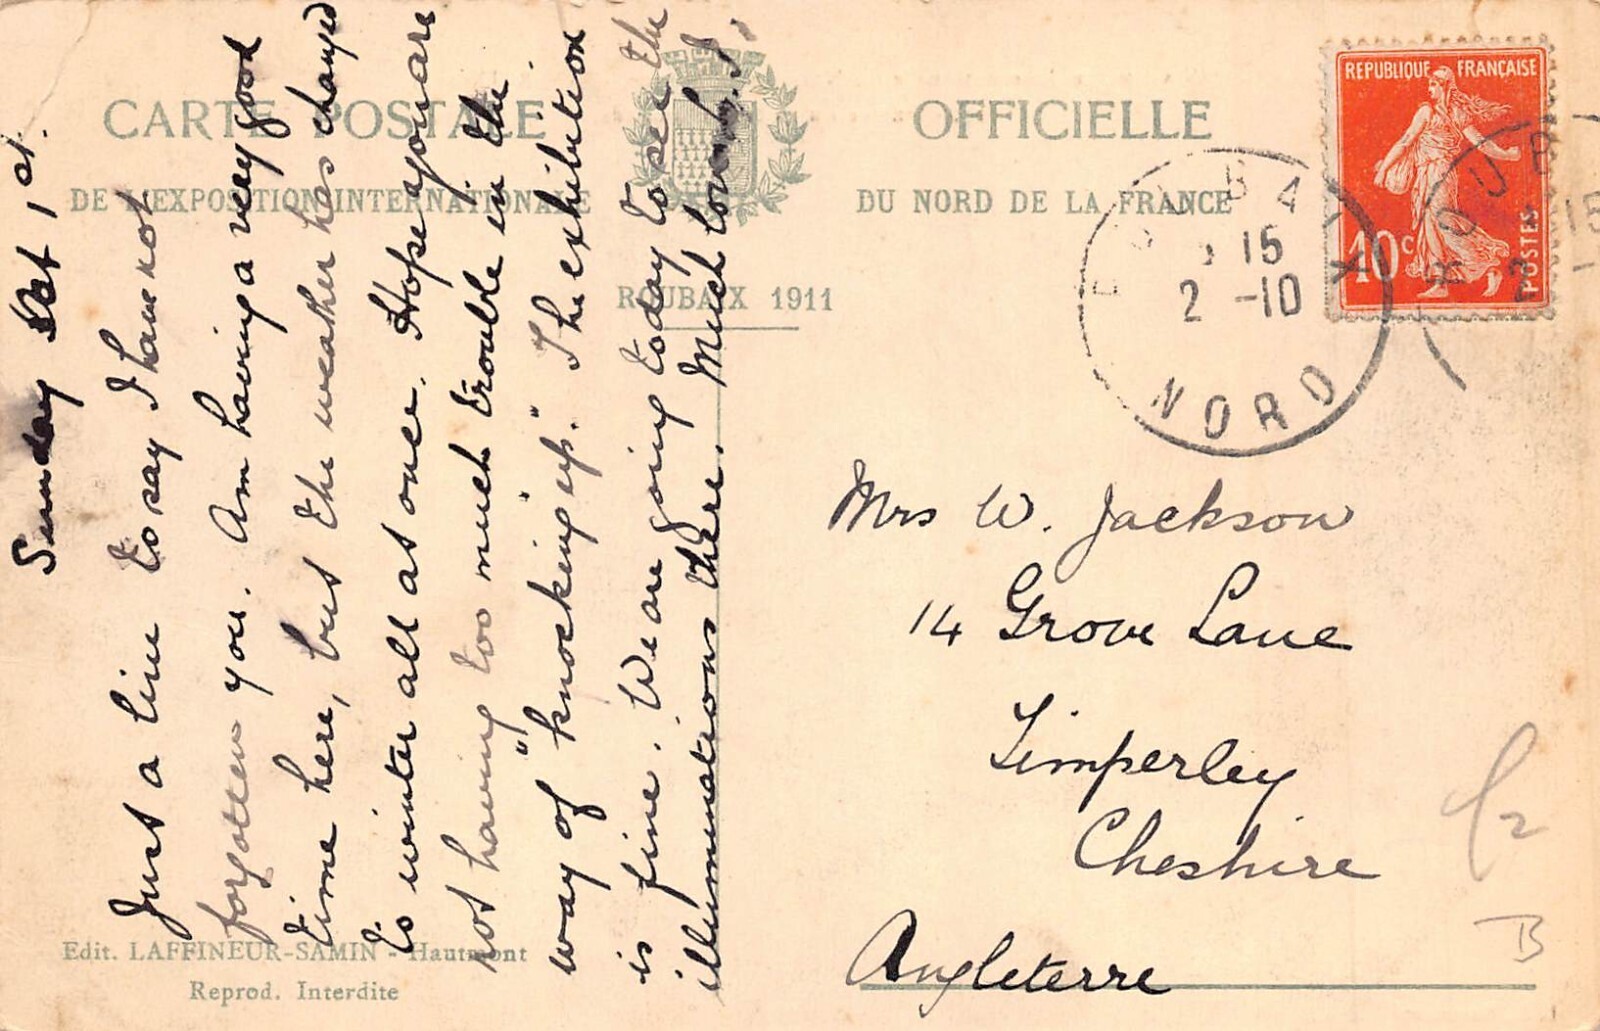 CARTE POSTALE OFFICIELLE
DE L'EXPOSITION INTERNATIONALE DU NORD DE LA FRANCE
ROUBAIX 1911
REPUBLIQUE FRANÇAISE
10c
POSTES
ROUBAIX
15
2 -10
NORD
ROUB
15
2 -
Sunday Oct 1st.
Just a line to say I have not
forgotten you. Am having a very good
time here, but the weather has changed
to winter all at once. Hope you are
not having too much trouble in the
way of "knocking up". The exhibition
is fine. We are going today to see the
illuminations there. Much love
Mrs W. Jackson
14 Grove Lane
Timperley
Cheshire
Angleterre
Edit. LAFFINEUR-SAMIN - Hautmont
Reprod. Interdite
B